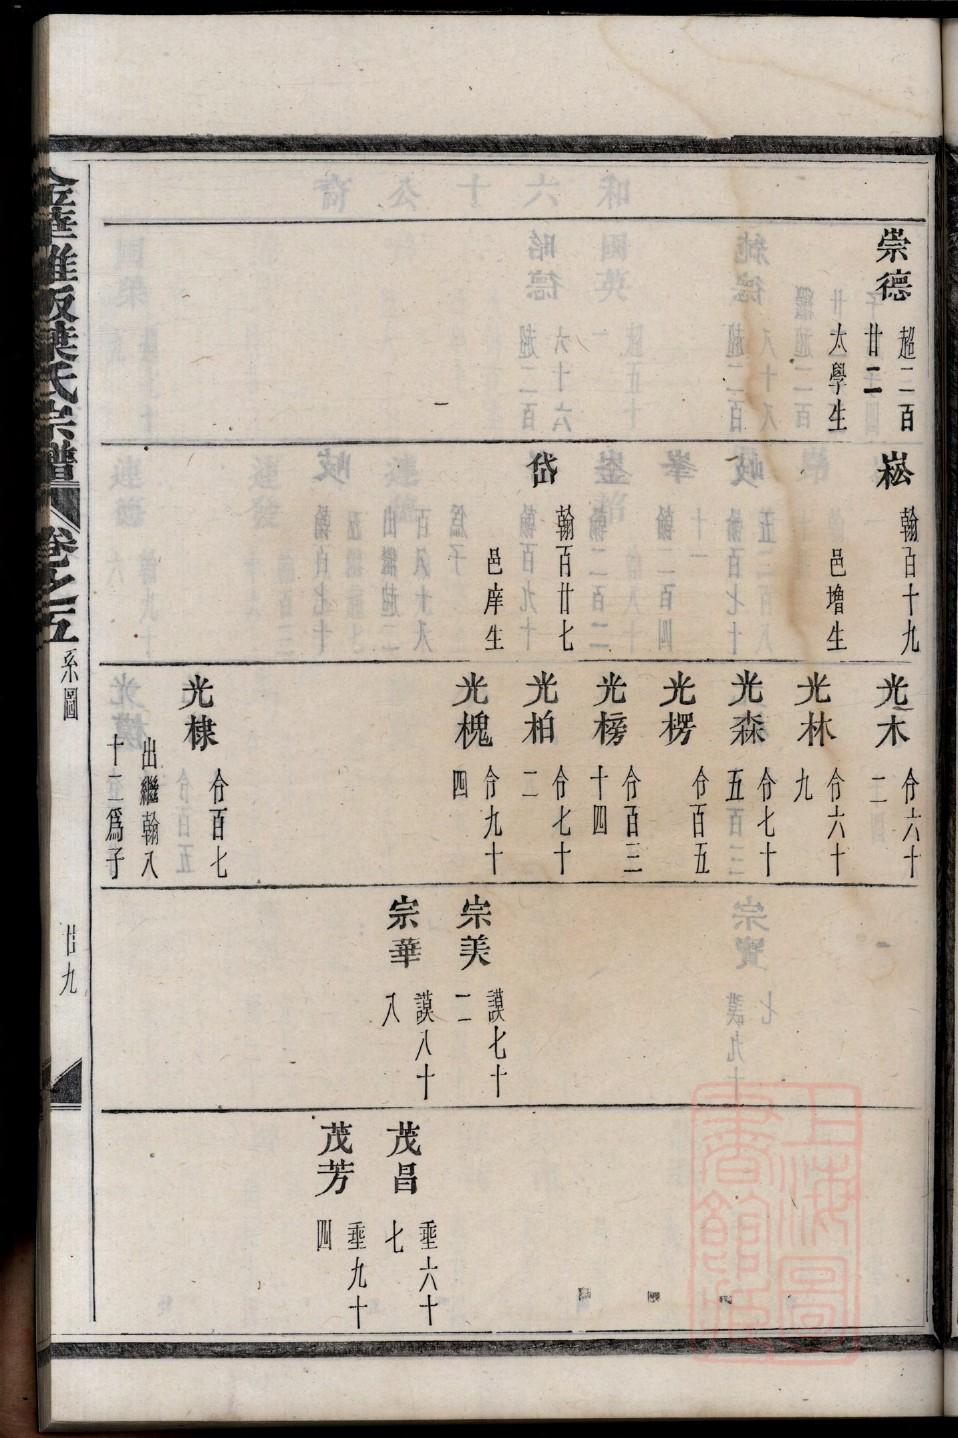 崇德
超二百
廿二
太學生
崧
翰百十九
邑增生
岱
翰百廿七
邑庠生
光木
令六十
二
光林
令六十
九
光森
令七十
五
光楞
令百五
光榜
令百三
十四
光柏
令七十
二
光槐
令九十
四
光棣
令百七
出繼翰八
十二爲子
宗美
謨七十
二
宗華
謨八十
八
茂昌
垂六十
七
茂芳
垂九十
四
葉氏宗譜
卷之五
系圖
廿九